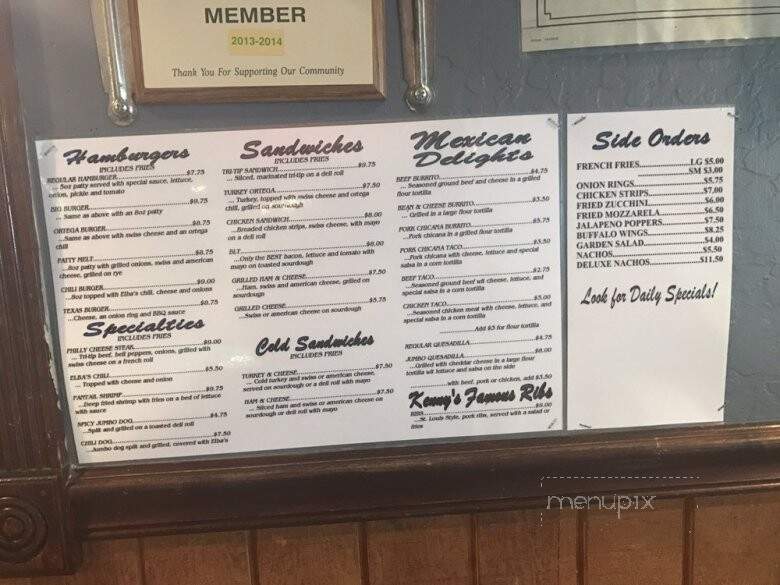 MEMBER
2013-2014
Thank You For Supporting Our Community
Hamburgers
INCLUDES FRIES
REGULAR HAMBURGER $7.75
... 8oz patty served with special sauce, lettuce,
onion, pickle and tomato
BIG BURGER
... Same as above with an 8oz patty
ORTEGA BURGER
... Same as above with swiss cheese and ortega
chili
PATTY MELT
... 8oz patty with grilled onions, swiss and american
cheese, grilled on rye
CHILI BURGER $9.00
... 8oz topped with Elba's chili, cheese and onions
TEXAS BURGER
... Cheese, an onion ring and BBQ sauce
Specialties
INCLUDES FRIES
PHILLY CHEESE STEAK $9.00
... Tri-tip beef, bell peppers, onions, grilled with
swiss cheese on a french roll
ELBA'S CHILI $5.50
... Topped with cheese and onion
FANTAIL SHRIMP $9.75
...Deep fried shrimp with fries on a bed of lettuce
with sauce
SPICY JUMBO DOG $4.75
...Split and grilled on a toasted deli roll
CHILI DOG $7.50
...Jumbo dog split and grilled, covered with Elba's
Sandwiches
INCLUDES FRIES
TRI-TIP SANDWICH $9.75
... Sliced, marinated tri-tip on a deli roll
TURKEY ORTEGA $7.50
... Turkey, topped with swiss cheese and ortega
chili, grilled on sourdough
CHICKEN SANDWICH $8.00
...Breaded chicken strips, swiss cheese, with mayo
on a deli roll
BLT $8.00
...Only the BEST bacon, lettuce and tomato with
mayo on toasted sourdough
GRILLED HAM & CHEESE $7.50
...Ham, swiss and american cheese, grilled on
sourdough
GRILLED CHEESE $5.75
...Swiss or american cheese on sourdough
Cold Sandwiches
INCLUDES FRIES
TURKEY & CHEESE $7.50
... Cold turkey and swiss or american cheese,
served on sourdough or a deli roll with mayo
HAM & CHEESE $7.50
... Sliced ham and swiss or american cheese on
sourdough or deli roll with mayo
Mexican
Delights
BEEF BURRITO $4.75
... Seasoned ground beef and cheese in a grilled
flour tortilla
BEAN & CHEESE BURRITO $3.50
... Grilled in a large flour tortilla
PORK CHICANA BURRITO $5.75
...Pork chicana in a grilled flour tortilla
PORK CHICANA TACO $3.50
...Pork chicana with cheese, lettuce and special
salsa in a corn tortilla
BEEF TACO $2.75
...Seasoned ground beef wit cheese, lettuce, and
special salsa in a corn tortilla
CHICKEN TACO $3.00
...Seasoned chicken meat with cheese, lettuce, and
special salsa in a corn tortilla
Add $3 for flour tortilla
REGULAR QUESADILLA $4.75
JUMBO QUESADILLA $8.00
...Grilled with cheddar cheese in a large flour
tortilla wit lettuce and salsa on the side
with beef, pork or chicken, add $3.50
Kenny's Famous Ribs
RIBS $9.00
...St. Louis Style, pork ribs, served with a salad or
fries
Side Orders
FRENCH FRIES LG $5.00
SM $3.00
ONION RINGS $5.75
CHICKEN STRIPS $7.00
FRIED ZUCCHINI $6.00
FRIED MOZZARELA $6.50
JALAPENO POPPERS $7.50
BUFFALO WINGS $8.25
GARDEN SALAD $4.00
NACHOS $5.50
DELUXE NACHOS $11.50
Look for Daily Specials!
menupix